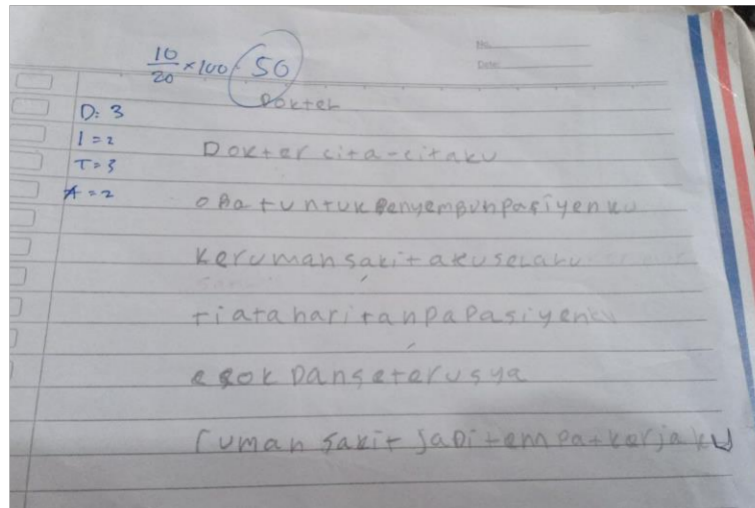 No.
Date:
10/20 × 100 = 50
Dokter
D: 3
I = 2
T = 3
A = 2
Dokter cita-citaku
obatuntuk penyembuhpasiyenku
kerumahsakitakuselalu
tiataharitanpapasiyenku
esok Danseterusya
rumah sakit jaDitempatkerjaku